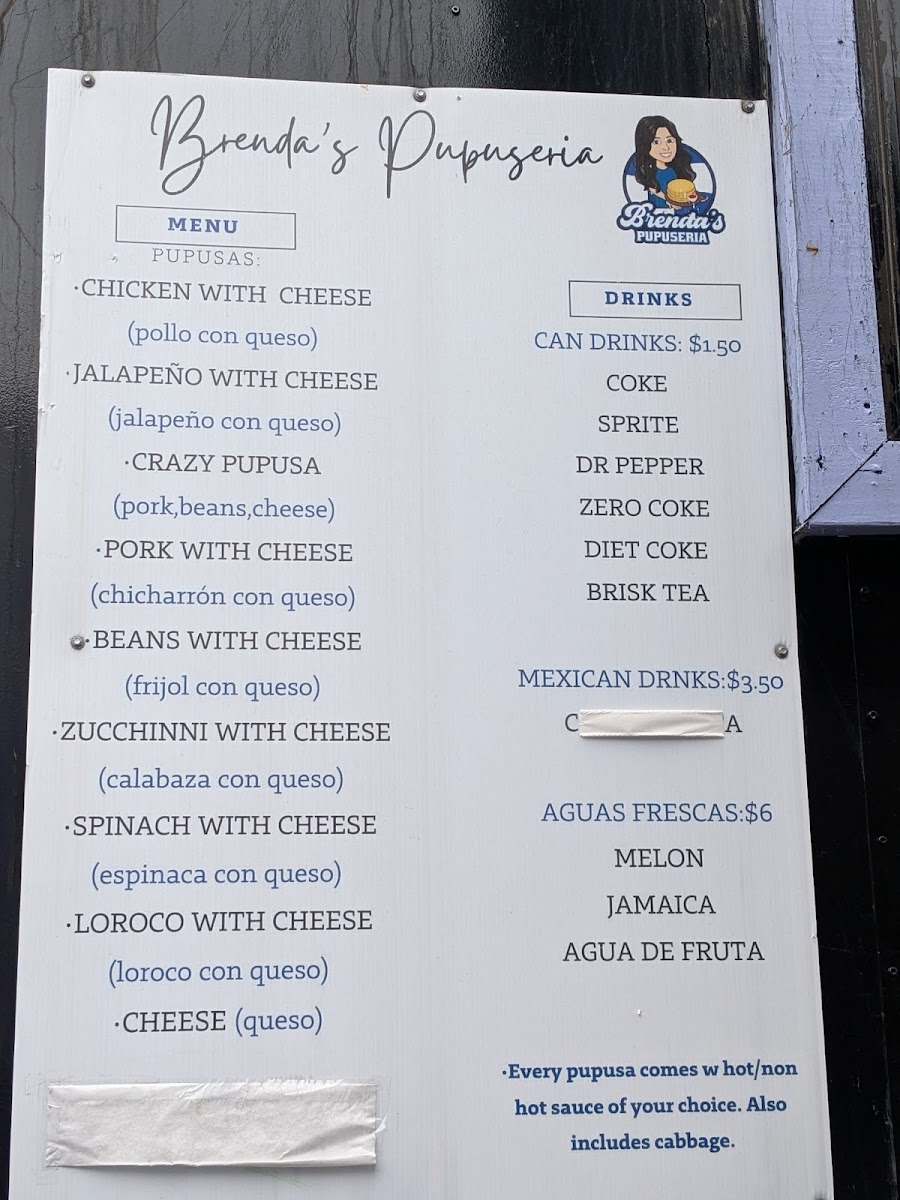 Brenda's Pupuseria
Brenda's
PUPUSERIA
MENU
PUPUSAS:
·CHICKEN WITH CHEESE
(pollo con queso)
·JALAPEÑO WITH CHEESE
(jalapeño con queso)
·CRAZY PUPUSA
(pork,beans,cheese)
·PORK WITH CHEESE
(chicharrón con queso)
·BEANS WITH CHEESE
(frijol con queso)
·ZUCCHINNI WITH CHEESE
(calabaza con queso)
·SPINACH WITH CHEESE
(espinaca con queso)
·LOROCO WITH CHEESE
(loroco con queso)
·CHEESE (queso)
DRINKS
CAN DRINKS: $1.50
COKE
SPRITE
DR PEPPER
ZERO COKE
DIET COKE
BRISK TEA
MEXICAN DRNKS:$3.50
AGUAS FRESCAS:$6
MELON
JAMAICA
AGUA DE FRUTA
·Every pupusa comes w hot/non
hot sauce of your choice. Also
includes cabbage.